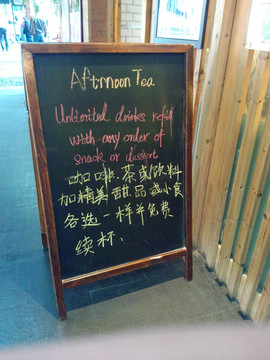 Afternoon Tea
Unlimited drinks refill
with any order of
snack or dessert
咖啡、茶或饮料
加精美甜品或小食
各选一样并免费
续杯.